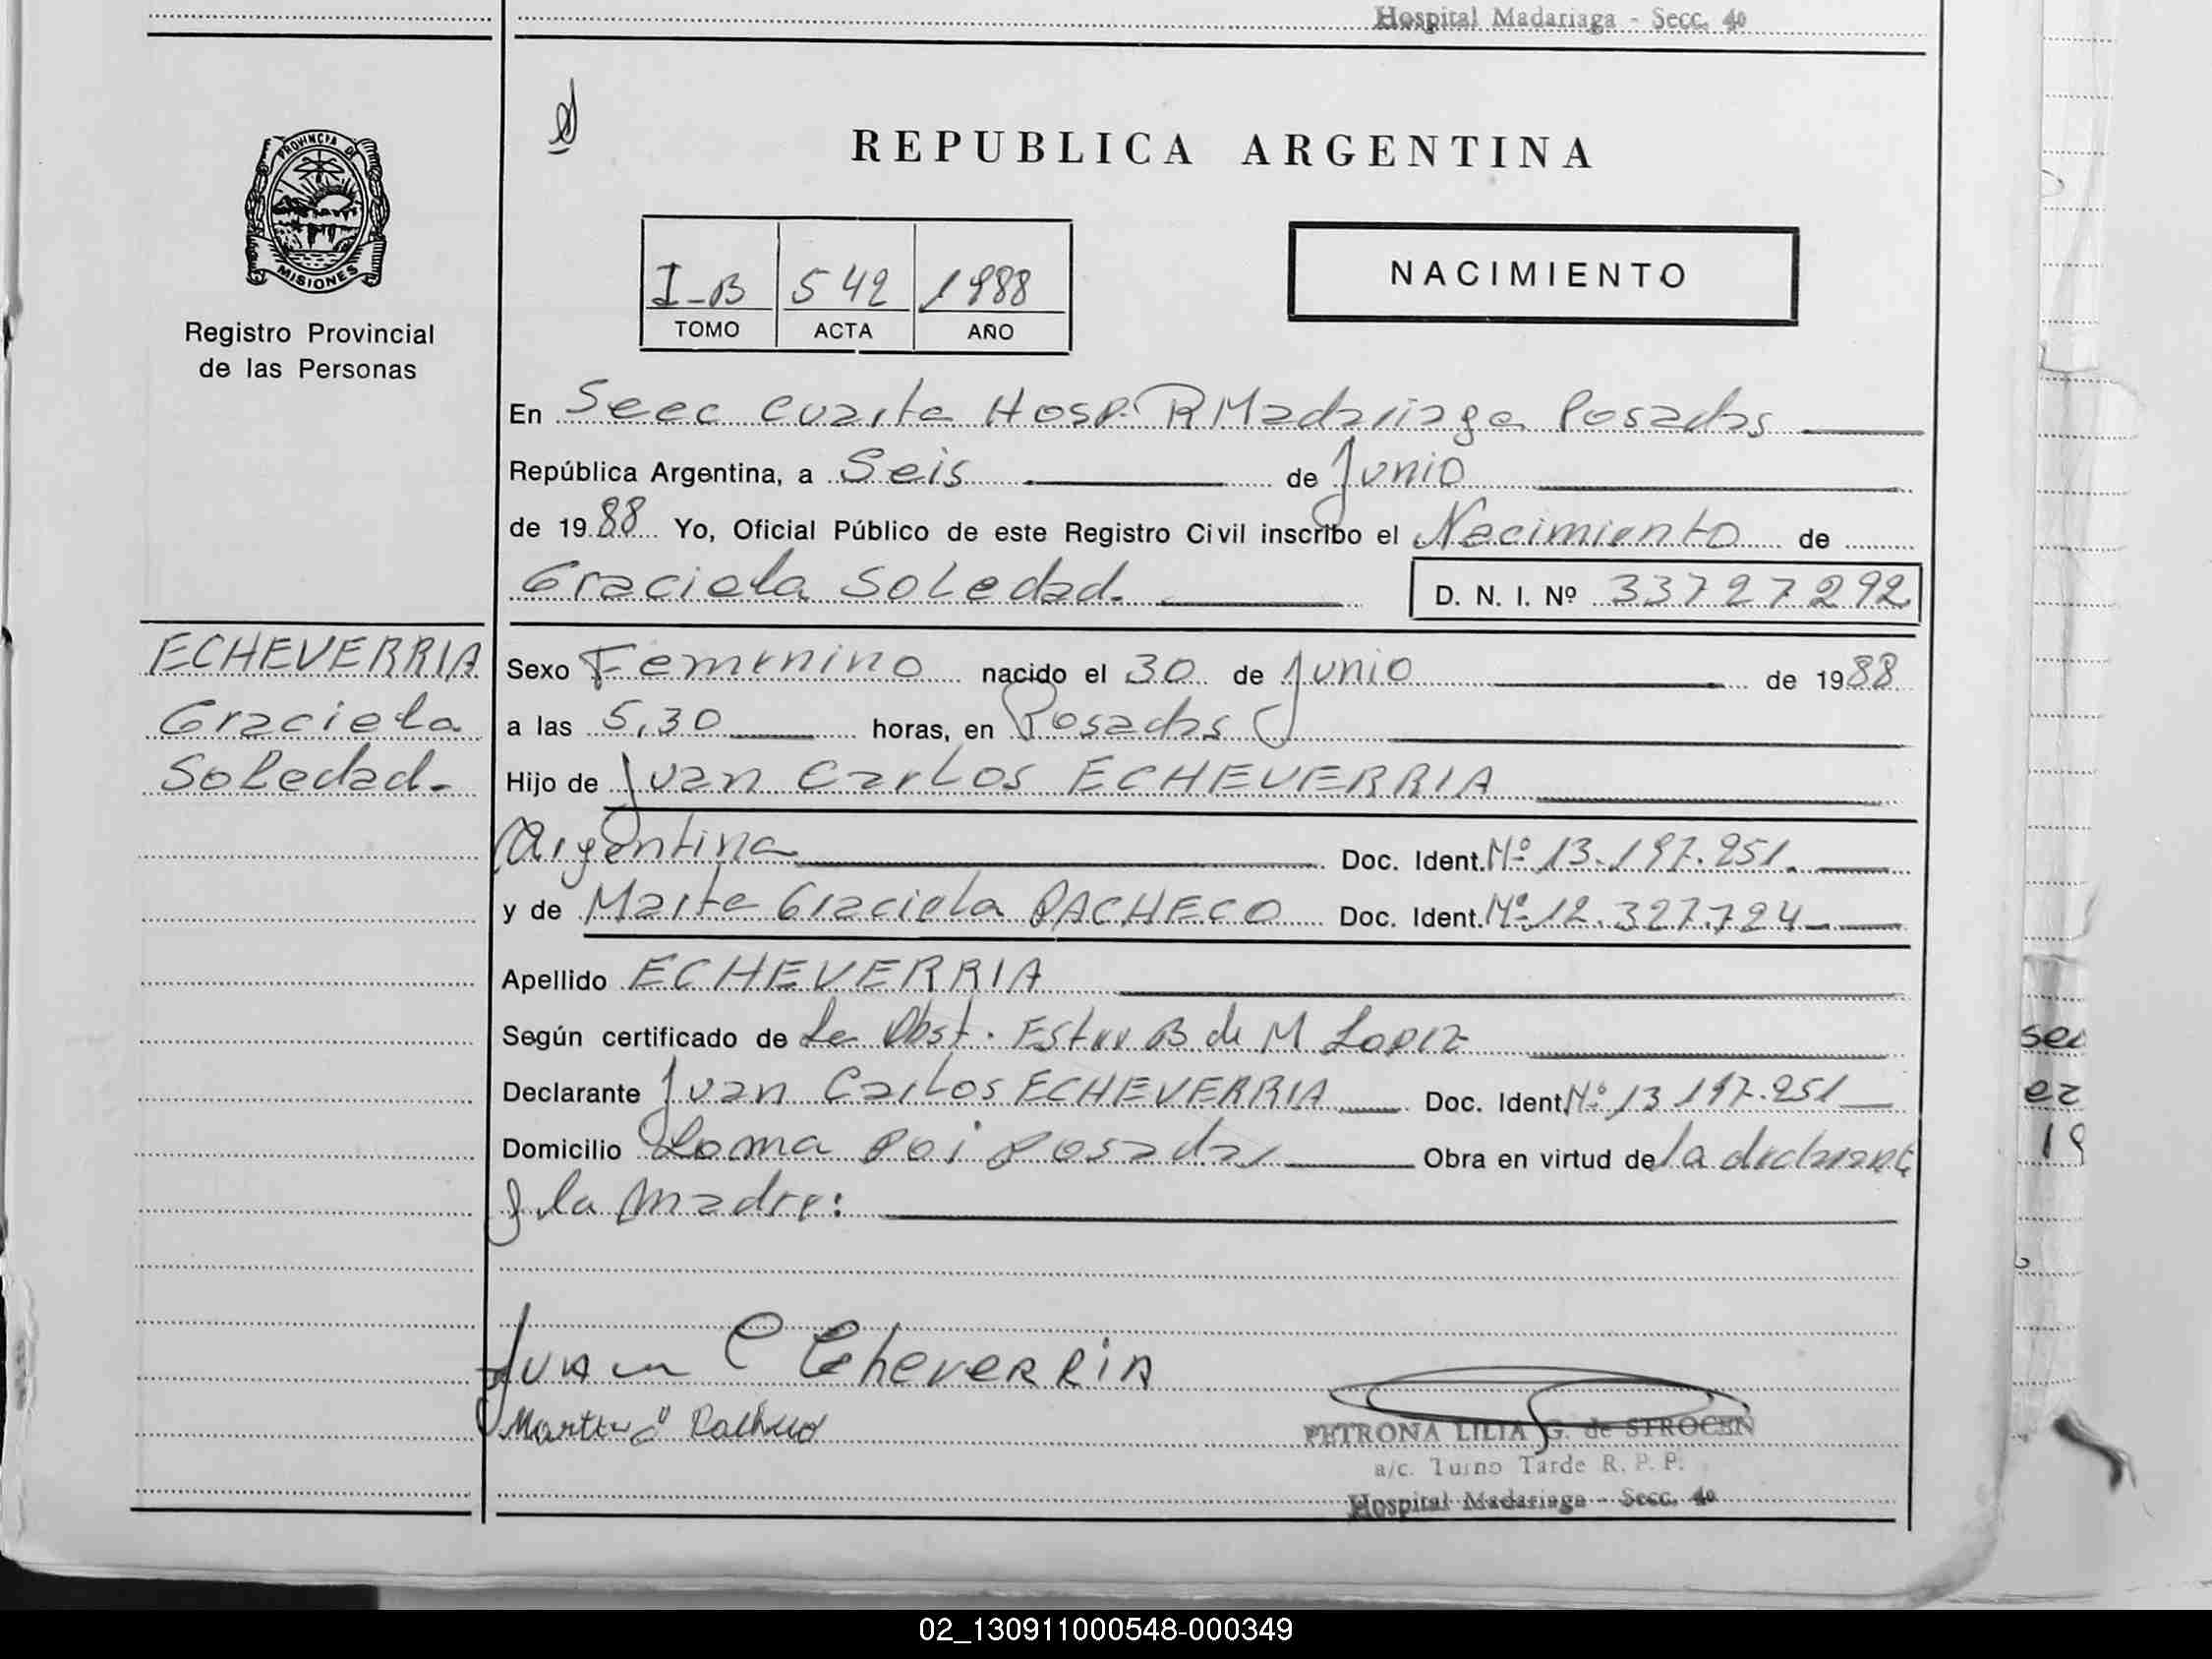 Hospital Madariaga - Secc. 4º
PROVINCIA DE
MISIONES
Registro Provincial
de las Personas
REPUBLICA ARGENTINA
I-B 542 1988
TOMO ACTA AÑO
NACIMIENTO
En Secc cuarta Hosp. R Madariaga Posadas
República Argentina, a Seis de Junio
de 1988 Yo, Oficial Público de este Registro Civil inscribo el Nacimiento de
Graciela Soledad. D. N. I. Nº 33727292
ECHEVERRIA
Graciela
Soledad.
Sexo Femenino nacido el 30 de Junio de 1988
a las 5,30 horas, en Posadas
Hijo de Juan Carlos ECHEVERRIA
Argentina Doc. Ident. Nº 13.197.251.
y de Marta Graciela PACHECO Doc. Ident. Nº 12.327.724
Apellido ECHEVERRIA
Según certificado de la Obst. Ester B de M Lopez
Declarante Juan Carlos ECHEVERRIA Doc. Ident. Nº 13 197.251
Domicilio Loma Poi Posadas Obra en virtud de la declarante
y la Madre:
Juan C Echeverria
Pacheco
PETRONA LILIA G. de STROCEN
a/c. Turno Tarde R. P. P.
Hospital Madariaga - Secc. 4º
02_130911000548-000349